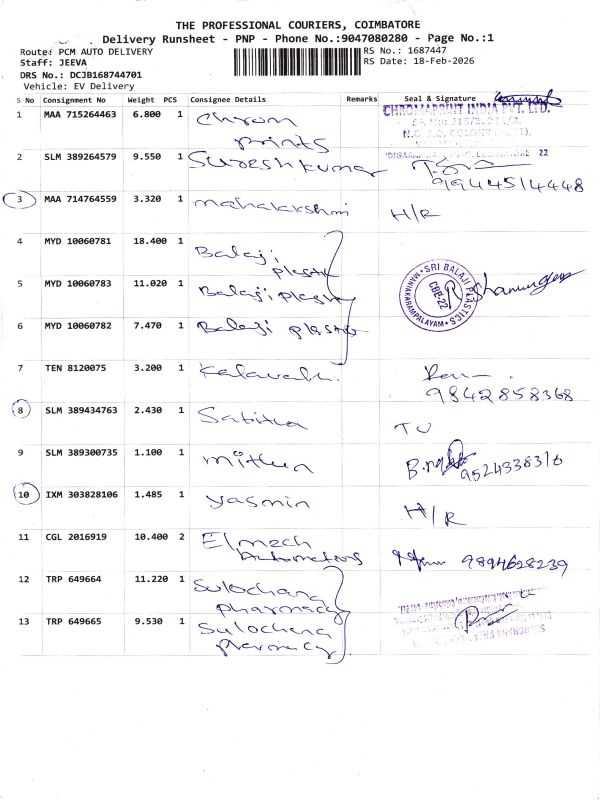 THE PROFESSIONAL COURIERS, COIMBATORE
Delivery Runsheet - PNP - Phone No.:9047080280 - Page No.:1
Route: PCM AUTO DELIVERY
RS No.: 1687447
Staff: JEEVA
RS Date: 18-Feb-2026
DRS No.: DCJB168744701
Vehicle: EV Delivery
S No Consignment No Weight PCS Consignee Details Remarks Seal & Signature
1 MAA 715264463 6.800 1 Chrom prints
CHROMAPRINT INDIA PVT. LTD.
2 SLM 389264579 9.550 1 Sureshkumar
9944514448
3 MAA 714764559 3.320 1 mahalakshmi H/R
4 MYD 10060781 18.400 1 Balaji plastic
5 MYD 10060783 11.020 1 Balaji plastic
SRI BALAJI PLASTICS
MANIAKARAMPALAYAM
CBE-22
6 MYD 10060782 7.470 1 Balaji plastic
7 TEN 8120075 3.200 1
9842858368
8 SLM 389434763 2.430 1 Sabitha TU
9 SLM 389300735 1.100 1 mithun
9524338316
10 IXM 303828106 1.485 1 yasmin H/R
11 CGL 2016919 10.400 2 Elmech Automations
9894628239
12 TRP 649664 11.220 1 Sulochana pharmacy
13 TRP 649665 9.530 1 Sulochana pharmacy